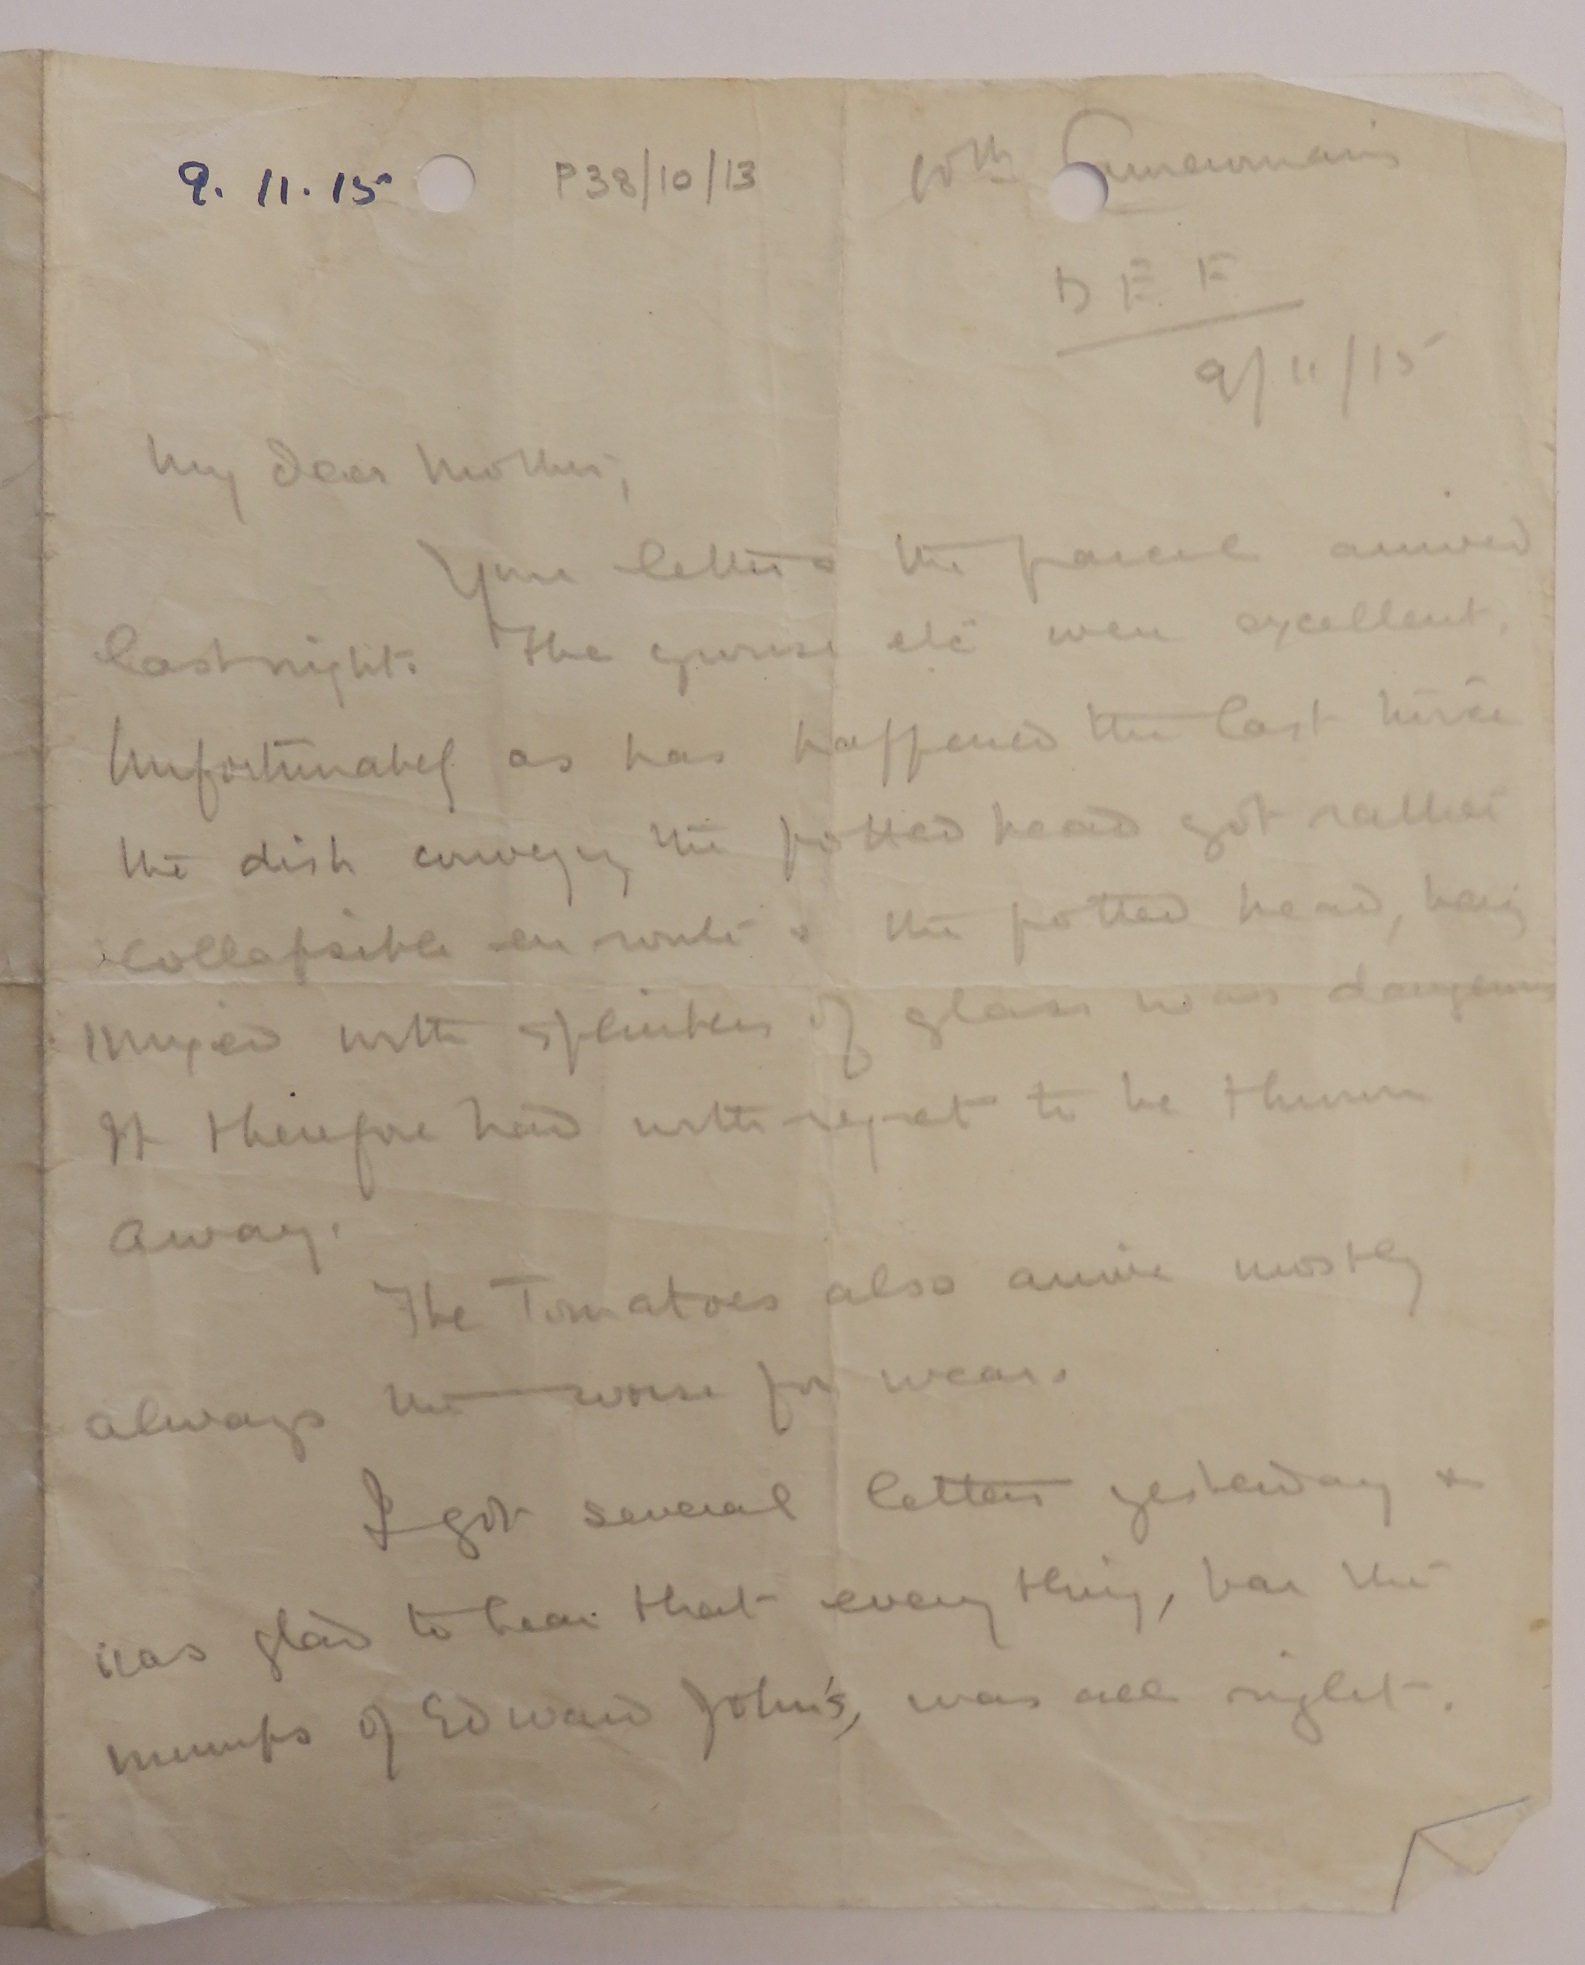 9.11.15 P38/10/13 10th
B E F.
9/11/15
My dear Mother,
Your letter & the parcel arrived
last night. The grouse etc were excellent.
Unfortunately as has happened the last twice
the dish conveying the potted head got rather
collapsible en route & the potted head, being
mixed with splinters of glass was dangerous
It therefore had with regret to be thrown
away.
The Tomatoes also arrive mostly
always the worse for wear.
I got several letters yesterday &
was glad to hear that every thing, bar the
mumps of Edward John's, was all right.